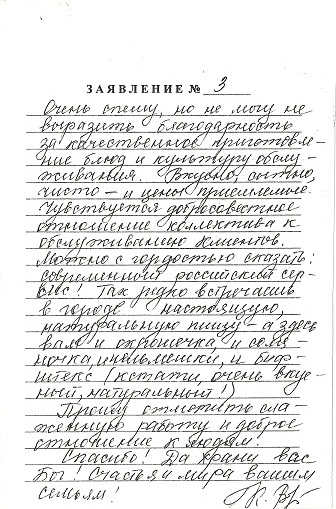 ЗАЯВЛЕНИЕ № 3
Очень спешу, но не могу не
выразить благодарность
за качественное приготовле-
ние блюд и культуру обслу-
живания. Вкусно, сытно,
чисто – и цены приемлемые.
Чувствуется добросовестное
отношение коллектива к
обслуживанию клиентов.
Можно с гордостью сказать:
современный российский сер-
вис! Так редко встречаешь
в городе настоящую,
натуральную пищу – а здесь
вам и окрошечка, и соля-
ночка, и пельмешки, и биф-
штекс (кстати, очень вкус-
ный, натуральный!)
Прошу отметить сла-
женную работу и доброе
отношение к людям!
Спасибо! Да храни вас
Бог! Счастья и мира вашим
семьям!